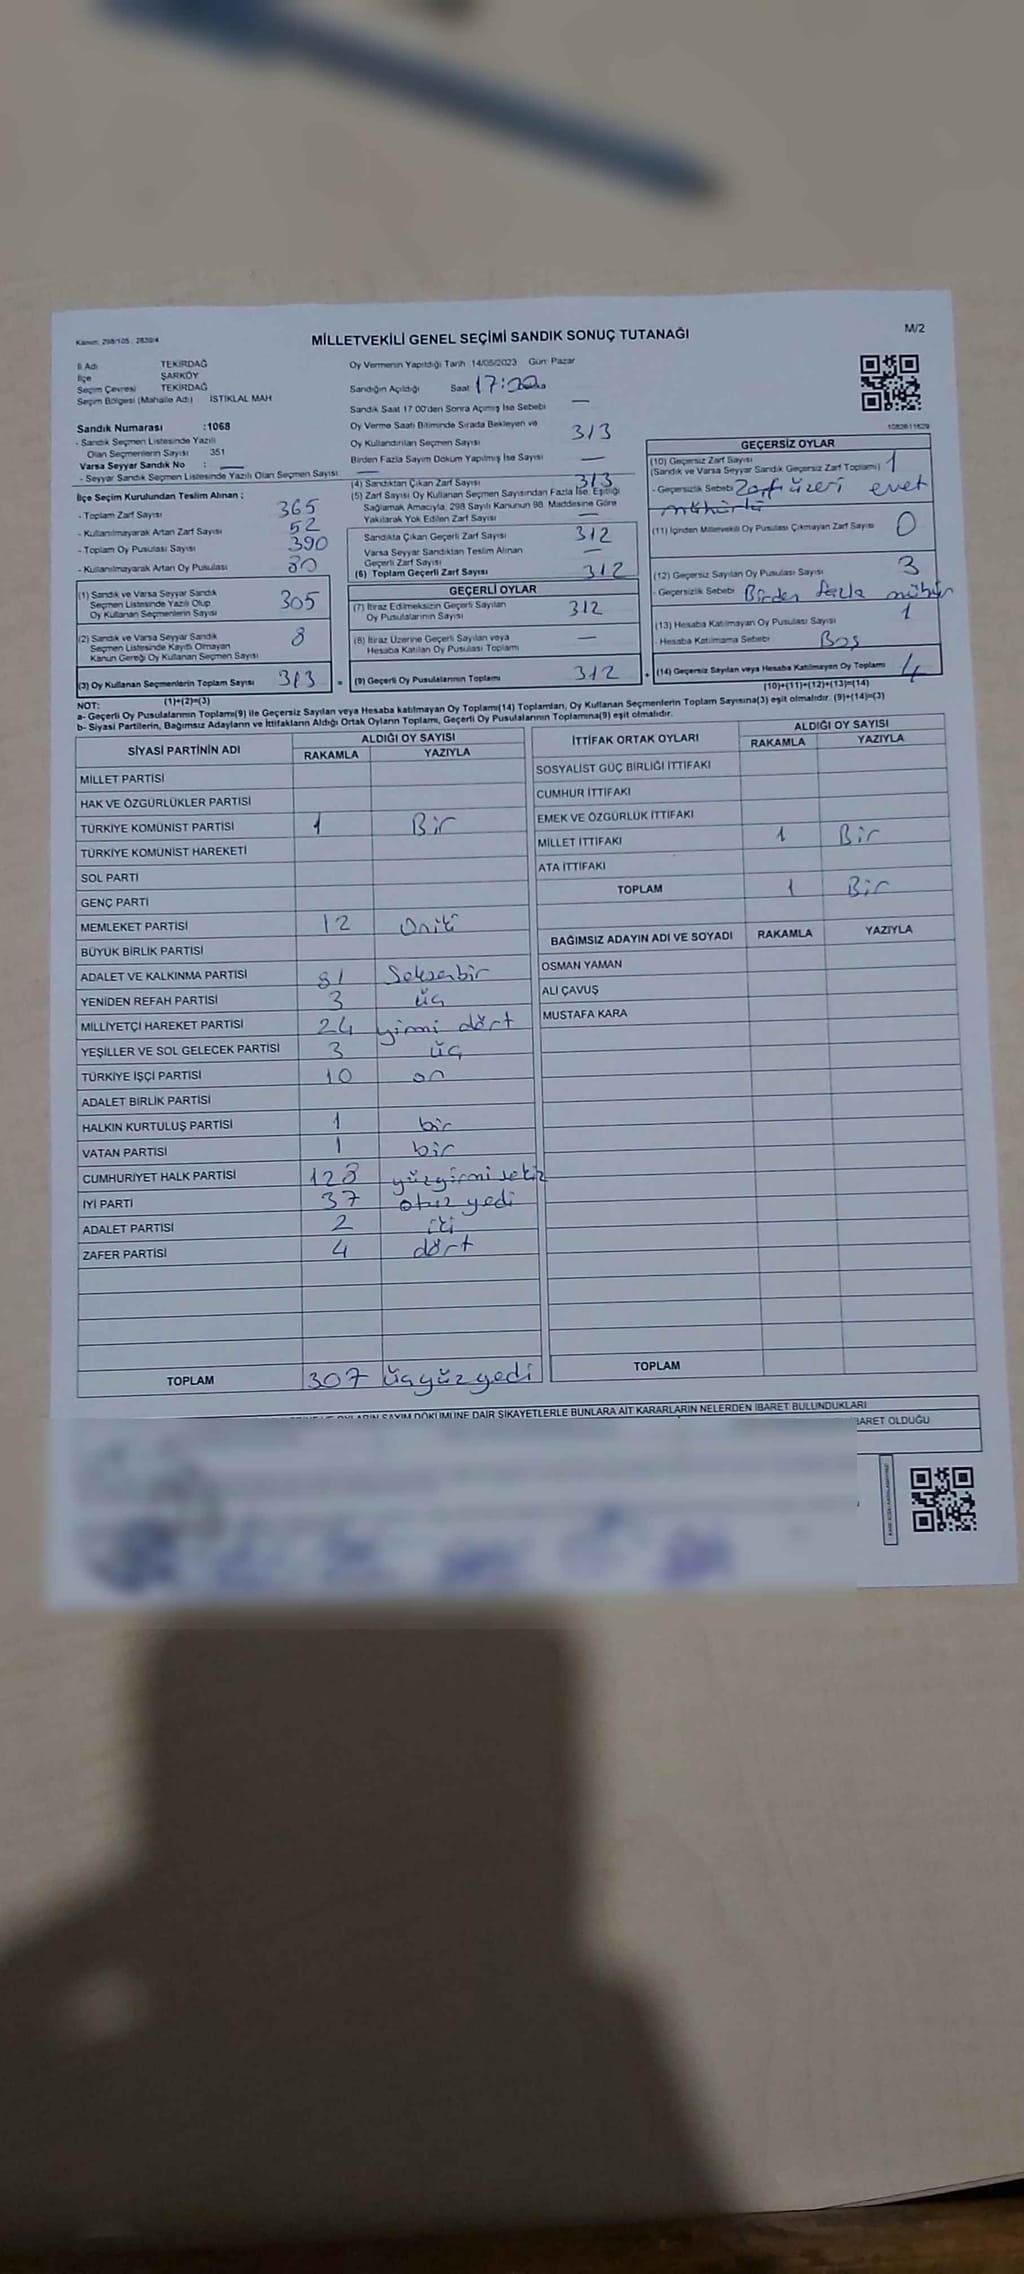 Kanun: 298/105 - 2839/4
MİLLETVEKİLİ GENEL SEÇİMİ SANDIK SONUÇ TUTANAĞI
M/2
İl Adı TEKİRDAĞ
İlçe ŞARKÖY
Seçim Çevresi TEKİRDAĞ
Seçim Bölgesi (Mahalle Adı) İSTİKLAL MAH
Sandık Numarası :1068
- Sandık Seçmen Listesinde Yazılı
Olan Seçmenlerin Sayısı 351
Varsa Seyyar Sandık No :
- Seyyar Sandık Seçmen Listesinde Yazılı Olan Seçmen Sayısı
İlçe Seçim Kurulundan Teslim Alınan :
- Toplam Zarf Sayısı 365
- Kullanılmayarak Artan Zarf Sayısı 52
- Toplam Oy Pusulası Sayısı 390
- Kullanılmayarak Artan Oy Pusulası
(1) Sandık ve Varsa Seyyar Sandık
Seçmen Listesinde Yazılı Olup
Oy Kullanan Seçmenlerin Sayısı 305
(2) Sandık ve Varsa Seyyar Sandık
Seçmen Listesinde Kayıtlı Olmayan
Kanun Gereği Oy Kullanan Seçmen Sayısı 8
(3) Oy Kullanan Seçmenlerin Toplam Sayısı 313 =
(1)+(2)=(3)
Oy Vermenin Yapıldığı Tarih : 14/05/2023 Gün: Pazar
Sandığın Açıldığı Saat 17:00
Sandık Saat 17.00'den Sonra Açımış İse Sebebi —
Oy Verme Saati Bitiminde Sırada Bekleyen ve
Oy Kullandırılan Seçmen Sayısı 313
Birden Fazla Sayım Döküm Yapılmış İse Sayısı —
(4) Sandıktan Çıkan Zarf Sayısı 313
(5) Zarf Sayısı Oy Kullanan Seçmen Sayısından Fazla İse, Eşitliği
Sağlamak Amacıyla, 298 Sayılı Kanunun 98. Maddesine Göre
Yakılarak Yok Edilen Zarf Sayısı —
Sandıkta Çıkan Geçerli Zarf Sayısı 312
Varsa Seyyar Sandıktan Teslim Alınan
Geçerli Zarf Sayısı —
(6) Toplam Geçerli Zarf Sayısı 312
GEÇERLİ OYLAR
(7) İtiraz Edilmeksizin Geçerli Sayılan
Oy Pusulalarının Sayısı 312
(8) İtiraz Üzerine Geçerli Sayılan veya
Hesaba Katılan Oy Pusulası Toplamı —
(9) Geçerli Oy Pusulalarının Toplamı 312 +
1082611629
GEÇERSİZ OYLAR
(10) Geçersiz Zarf Sayısı
(Sandık ve Varsa Seyyar Sandık Geçersiz Zarf Toplamı) 1
- Geçersizlik Sebebi Zarf üzeri evet
mühürlü
(11) İçinden Milletvekili Oy Pusulası Çıkmayan Zarf Sayısı 0
(12) Geçersiz Sayılan Oy Pusulası Sayısı 3
- Geçersizlik Sebebi Birden fazla mühür
(13) Hesaba Katılmayan Oy Pusulası Sayısı 1
- Hesaba Katılmama Sebebi Boş
(14) Geçersiz Sayılan veya Hesaba Katılmayan Oy Toplamı 4
(10)+(11)+(12)+(13)=(14)
NOT:
a- Geçerli Oy Pusulalarının Toplamı(9) ile Geçersiz Sayılan veya Hesaba katılmayan Oy Toplamı(14) Toplamları, Oy Kullanan Seçmenlerin Toplam Sayısına(3) eşit olmalıdır. (9)+(14)=(3)
b- Siyasi Partilerin, Bağımsız Adayların ve İttifakların Aldığı Ortak Oyların Toplamı, Geçerli Oy Pusulalarının Toplamına(9) eşit olmalıdır.
SİYASİ PARTİNİN ADI ALDIĞI OY SAYISI
RAKAMLA YAZIYLA
MİLLET PARTİSİ
HAK VE ÖZGÜRLÜKLER PARTİSİ
TÜRKİYE KOMÜNİST PARTİSİ 1 Bir
TÜRKİYE KOMÜNİST HAREKETİ
SOL PARTİ
GENÇ PARTİ
MEMLEKET PARTİSİ 12 Oniki
BÜYÜK BİRLİK PARTİSİ
ADALET VE KALKINMA PARTİSİ 81 Seksenbir
YENİDEN REFAH PARTİSİ 3 üç
MİLLİYETÇİ HAREKET PARTİSİ 24 yirmi dört
YEŞİLLER VE SOL GELECEK PARTİSİ 3 üç
TÜRKİYE İŞÇİ PARTİSİ 10 on
ADALET BİRLİK PARTİSİ
HALKIN KURTULUŞ PARTİSİ 1 bir
VATAN PARTİSİ 1 bir
CUMHURİYET HALK PARTİSİ 128 yüzyirmi sekiz
İYİ PARTİ 37 otuz yedi
ADALET PARTİSİ 2 iki
ZAFER PARTİSİ 4 dört
TOPLAM 307 üçyüz yedi
İTTİFAK ORTAK OYLARI ALDIĞI OY SAYISI
RAKAMLA YAZIYLA
SOSYALİST GÜÇ BİRLİĞİ İTTİFAKI
CUMHUR İTTİFAKI
EMEK VE ÖZGÜRLÜK İTTİFAKI
MİLLET İTTİFAKI 1 Bir
ATA İTTİFAKI
TOPLAM 1 Bir
BAĞIMSIZ ADAYIN ADI VE SOYADI RAKAMLA YAZIYLA
OSMAN YAMAN
ALİ ÇAVUŞ
MUSTAFA KARA
TOPLAM
SAYIM DÖKÜMÜNE DAİR ŞİKAYETLERLE BUNLARA AİT KARARLARIN NELERDEN İBARET BULUNDUKLARI
İBARET OLDUĞU